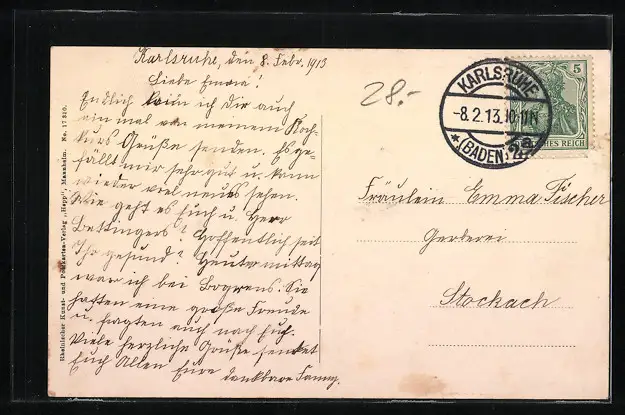 Karlsruhe, den 8. Febr. 1913
Liebe Emma!
Endlich kann ich dir auch
ein mal von meinem Koch-
kurs Grüße senden. Es ge-
fällt mir sehr gut u. kann
wieder viel neues sehen.
Wie geht es Euch u. Herr
Bettingers? Hoffentlich seit
Ihr gesund? Heute mittag
war ich bei Sie
hatten eine große Freude
u. fragten auch nach Euch.
Viele herzliche Grüße sendet
Euch Allen Eure dankbare Fanny.
28.-
KARLSRUHE
-8.2.13.10-11N
*(BADEN) 2a
5
DEUTSCHES REICH
Fräulein Emma Fischer
Gerberei
Stockach
Rheinischer Kunst- und Postkarten-Verlag „Hepp", Mannheim. No. 17 320.